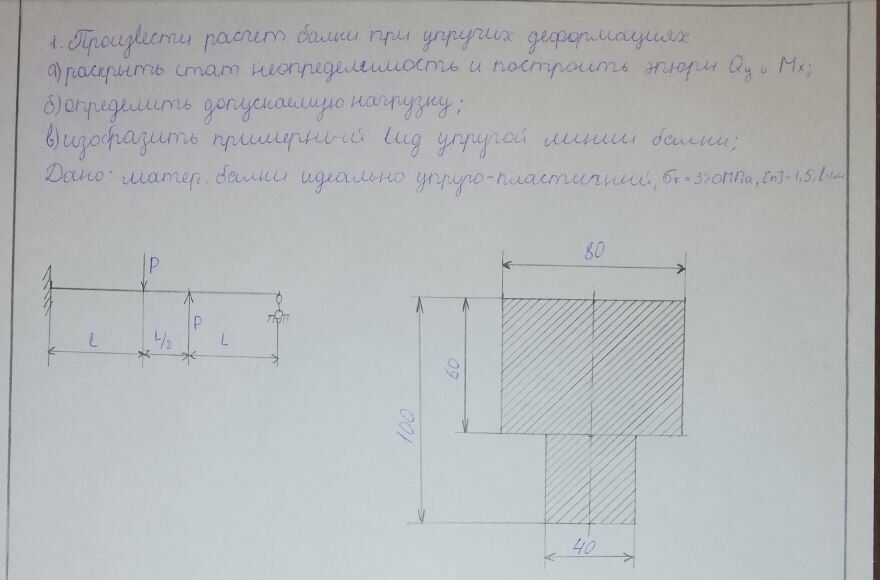 1. Произвести расчет балки при упругих деформациях
а) раскрыть стат. неопределимость и построить эпюры Qy и Mx;
б) определить допускаемую нагрузку;
в) изобразить примерный вид упругой линии балки;
Дано: матер. балки идеально упруго-пластичный, σт = 320МПа, [n]=1,5; l=1м
P
P
l
L/2
L
80
60
100
40